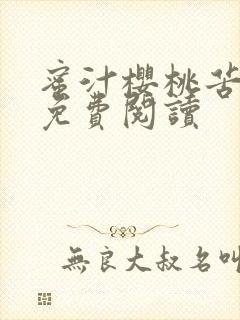 蜜汁櫻桃苦
免費閱讀
無良大叔名叫